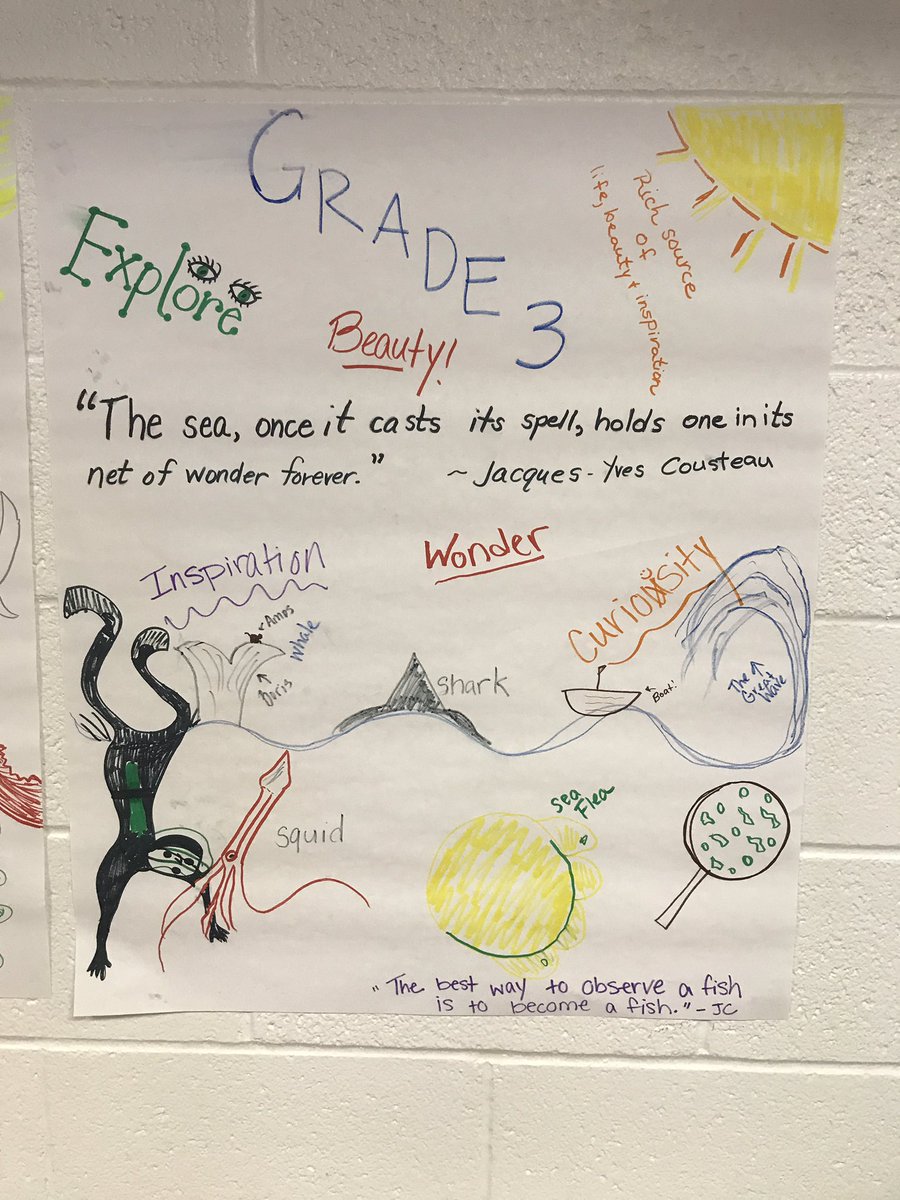 GRADE 3
Explore
Rich source
of
life, beauty + inspiration
Beauty!
"The sea, once it casts its spell, holds one in its
net of wonder forever." ~ Jacques-Yves Cousteau
Inspiration
Wonder
Curiosity
Amos
Whale
Doris
shark
Boat!
The
Great
Wave
squid
sea
Flea
"The best way to observe a fish
is to become a fish." - JC